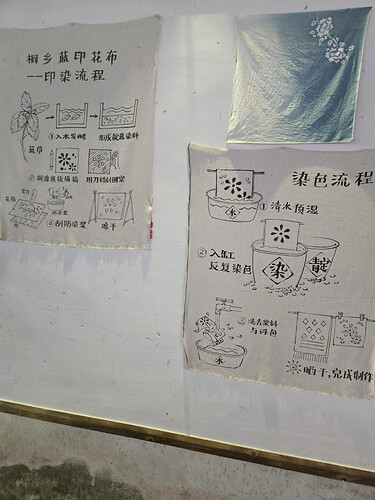 桐乡蓝印花布
--印染流程
①入水发酵
形成靛蓝染料
蓝草
用刀精刻图案
④刮防染浆
晾干
染色流程
水
①清水预湿
②入缸
反复染色
染
靛
③洗去浆料
与浮色
水
晒干,完成制作